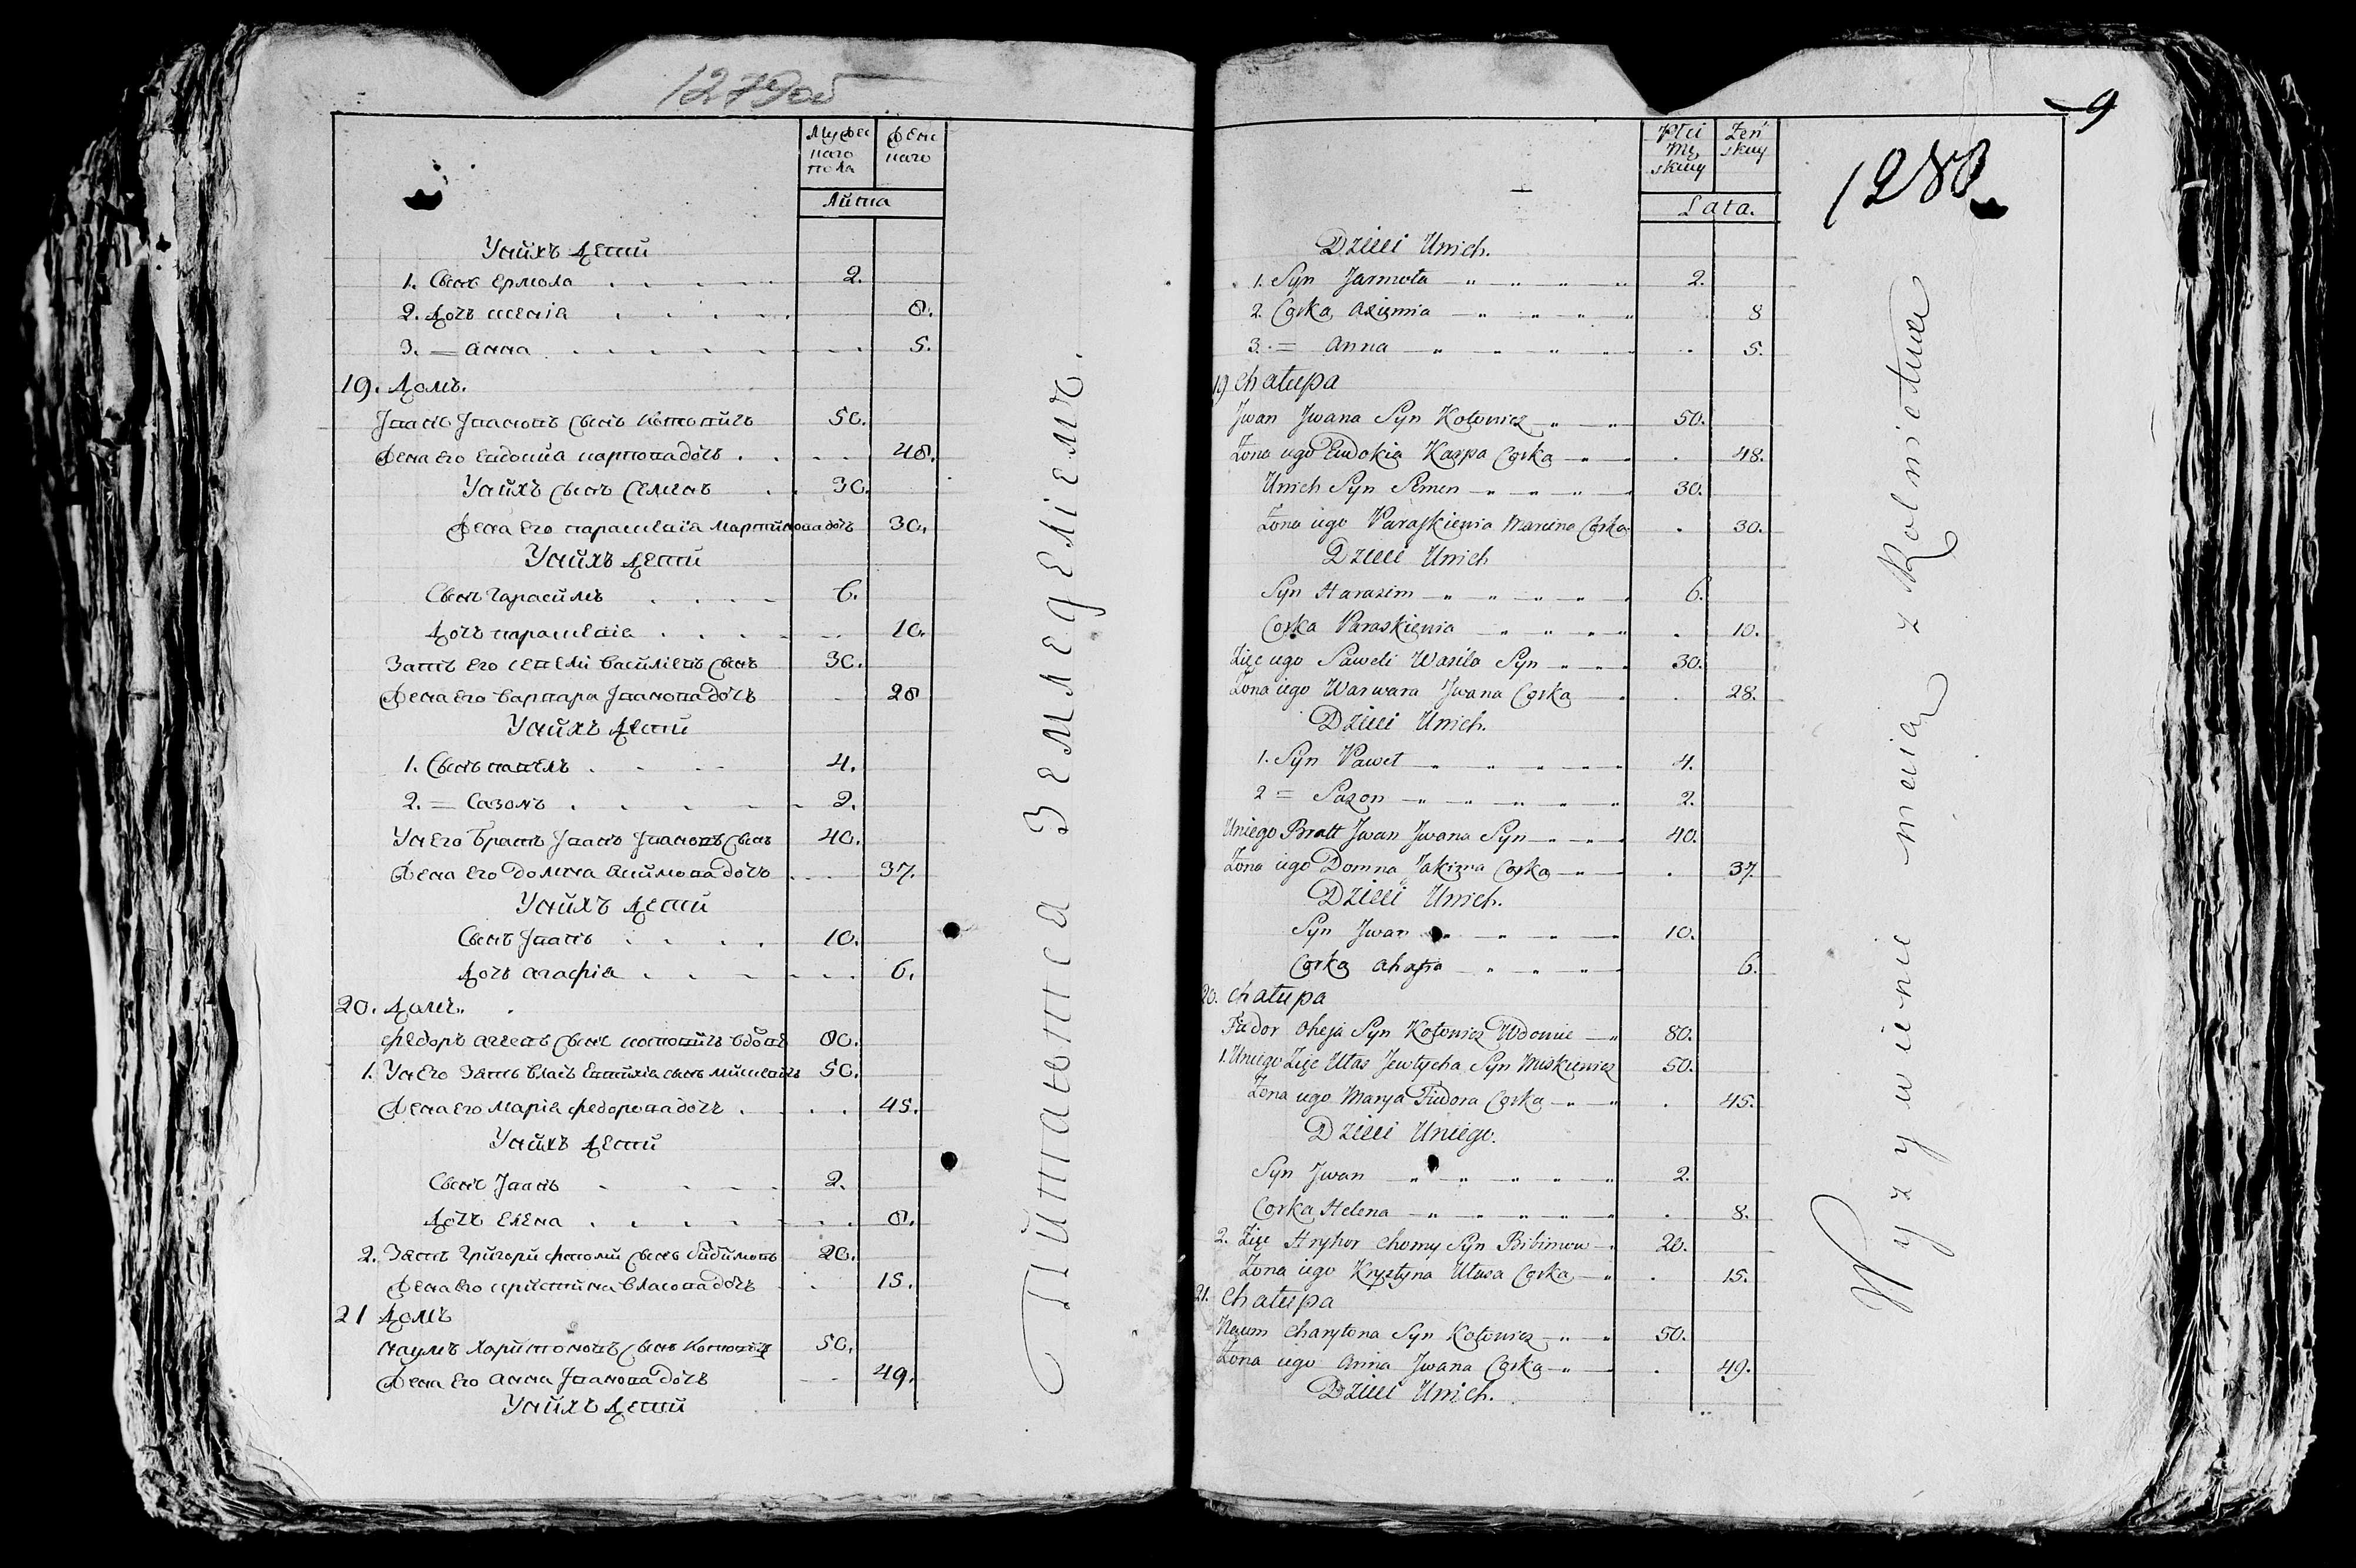 1279об
Мужескаго пола
Женскаго
Лита
Унихъ Дети
1. Сынъ Ермола 2.
2. Дочь 8.
3. = Анна 5.
19. Домъ.
Иванъ Ивановъ Сынъ Котовичъ 50.
Жена его Евдокиа карпова дочь 48.
Унихъ Сынъ Семенъ 30.
Жена его параскевиа мартинова дочь 30.
Унихъ Дети
Сынъ Гарасимъ 6.
Дочь параскевиа 10.
Зять его савели василіевъ Сынъ 30.
Жена его варвара Иванова дочь 28
Унихъ Дети
1. Сынъ павелъ 4.
2. = Сазонъ 2.
У него братъ Иванъ Ивановъ Сынъ 40.
Жена его домна акимова дочь 37.
Унихъ Дети
Сынъ Иванъ 10.
Дочь агафіа 6.
20. Домъ.
федоръ агеевъ Сынъ котовичъ вдовъ 80.
1. У него Зять власъ Евтихіа сынъ мискевичъ 50.
Жена его маріа федорова дочь 45.
Унихъ Дети
Сынъ Иванъ 2.
Дочь Елена 8.
2. Зять григори фоми Сынъ бибимовъ 20.
Жена его кристина власова дочь 15.
21 Домъ
наумъ харитоновъ Сынъ Котовичъ 50.
Жена его анна Иванова дочь 49.
Унихъ Дети
Питаютса Земледеліемъ.
9
1280
Płci Męskiey
Żeńskiey
Lata.
Dzieci Unich.
1. Syn Jarmoła 2.
2. Corka Axienia 8
3. = Anna 5.
19 Chałupa
Jwan Jwana Syn Kotowicz 50.
Żona iego Eudokia Karpa Corka 48.
Unich Syn Semen 30.
Żona iego Paraskiewia Marcina Corka 30.
Dzieci Unich
Syn Harasim 6.
Corka Paraskiewia 10.
Zięć iego Saweli Wasila Syn 30.
Żona iego Warwara Jwana Corka 28.
Dzieci Unich.
1. Syn Paweł 4.
2 = Sazon 2.
Uniego Bratt Jwan Jwana Syn 40.
Żona iego Domna Jakima Corka 37.
Dzieci Unich.
Syn Jwan 10.
Corka Ahafia 6.
20. Chałupa
Fiedor Oheja Syn Kotowicz Wdowiec 80.
1. Uniego Zięć Ułas Jewtycha Syn Miskiewicz 50.
Żona iego Marya Fiedora Corka 45.
Dzieci Uniego.
Syn Jwan 2.
Corka Helena 8.
2. Zięć Hryhor Chomy Syn Bibimow 20.
Żona iego Krystyna Ułasa Corka 15.
21. Chałupa
Naum Charytona Syn Kotowicz 50.
Żona iego Anna Jwana Corka 49.
Dzieci Unich.
Wyzywienie maią z Rolnictwa